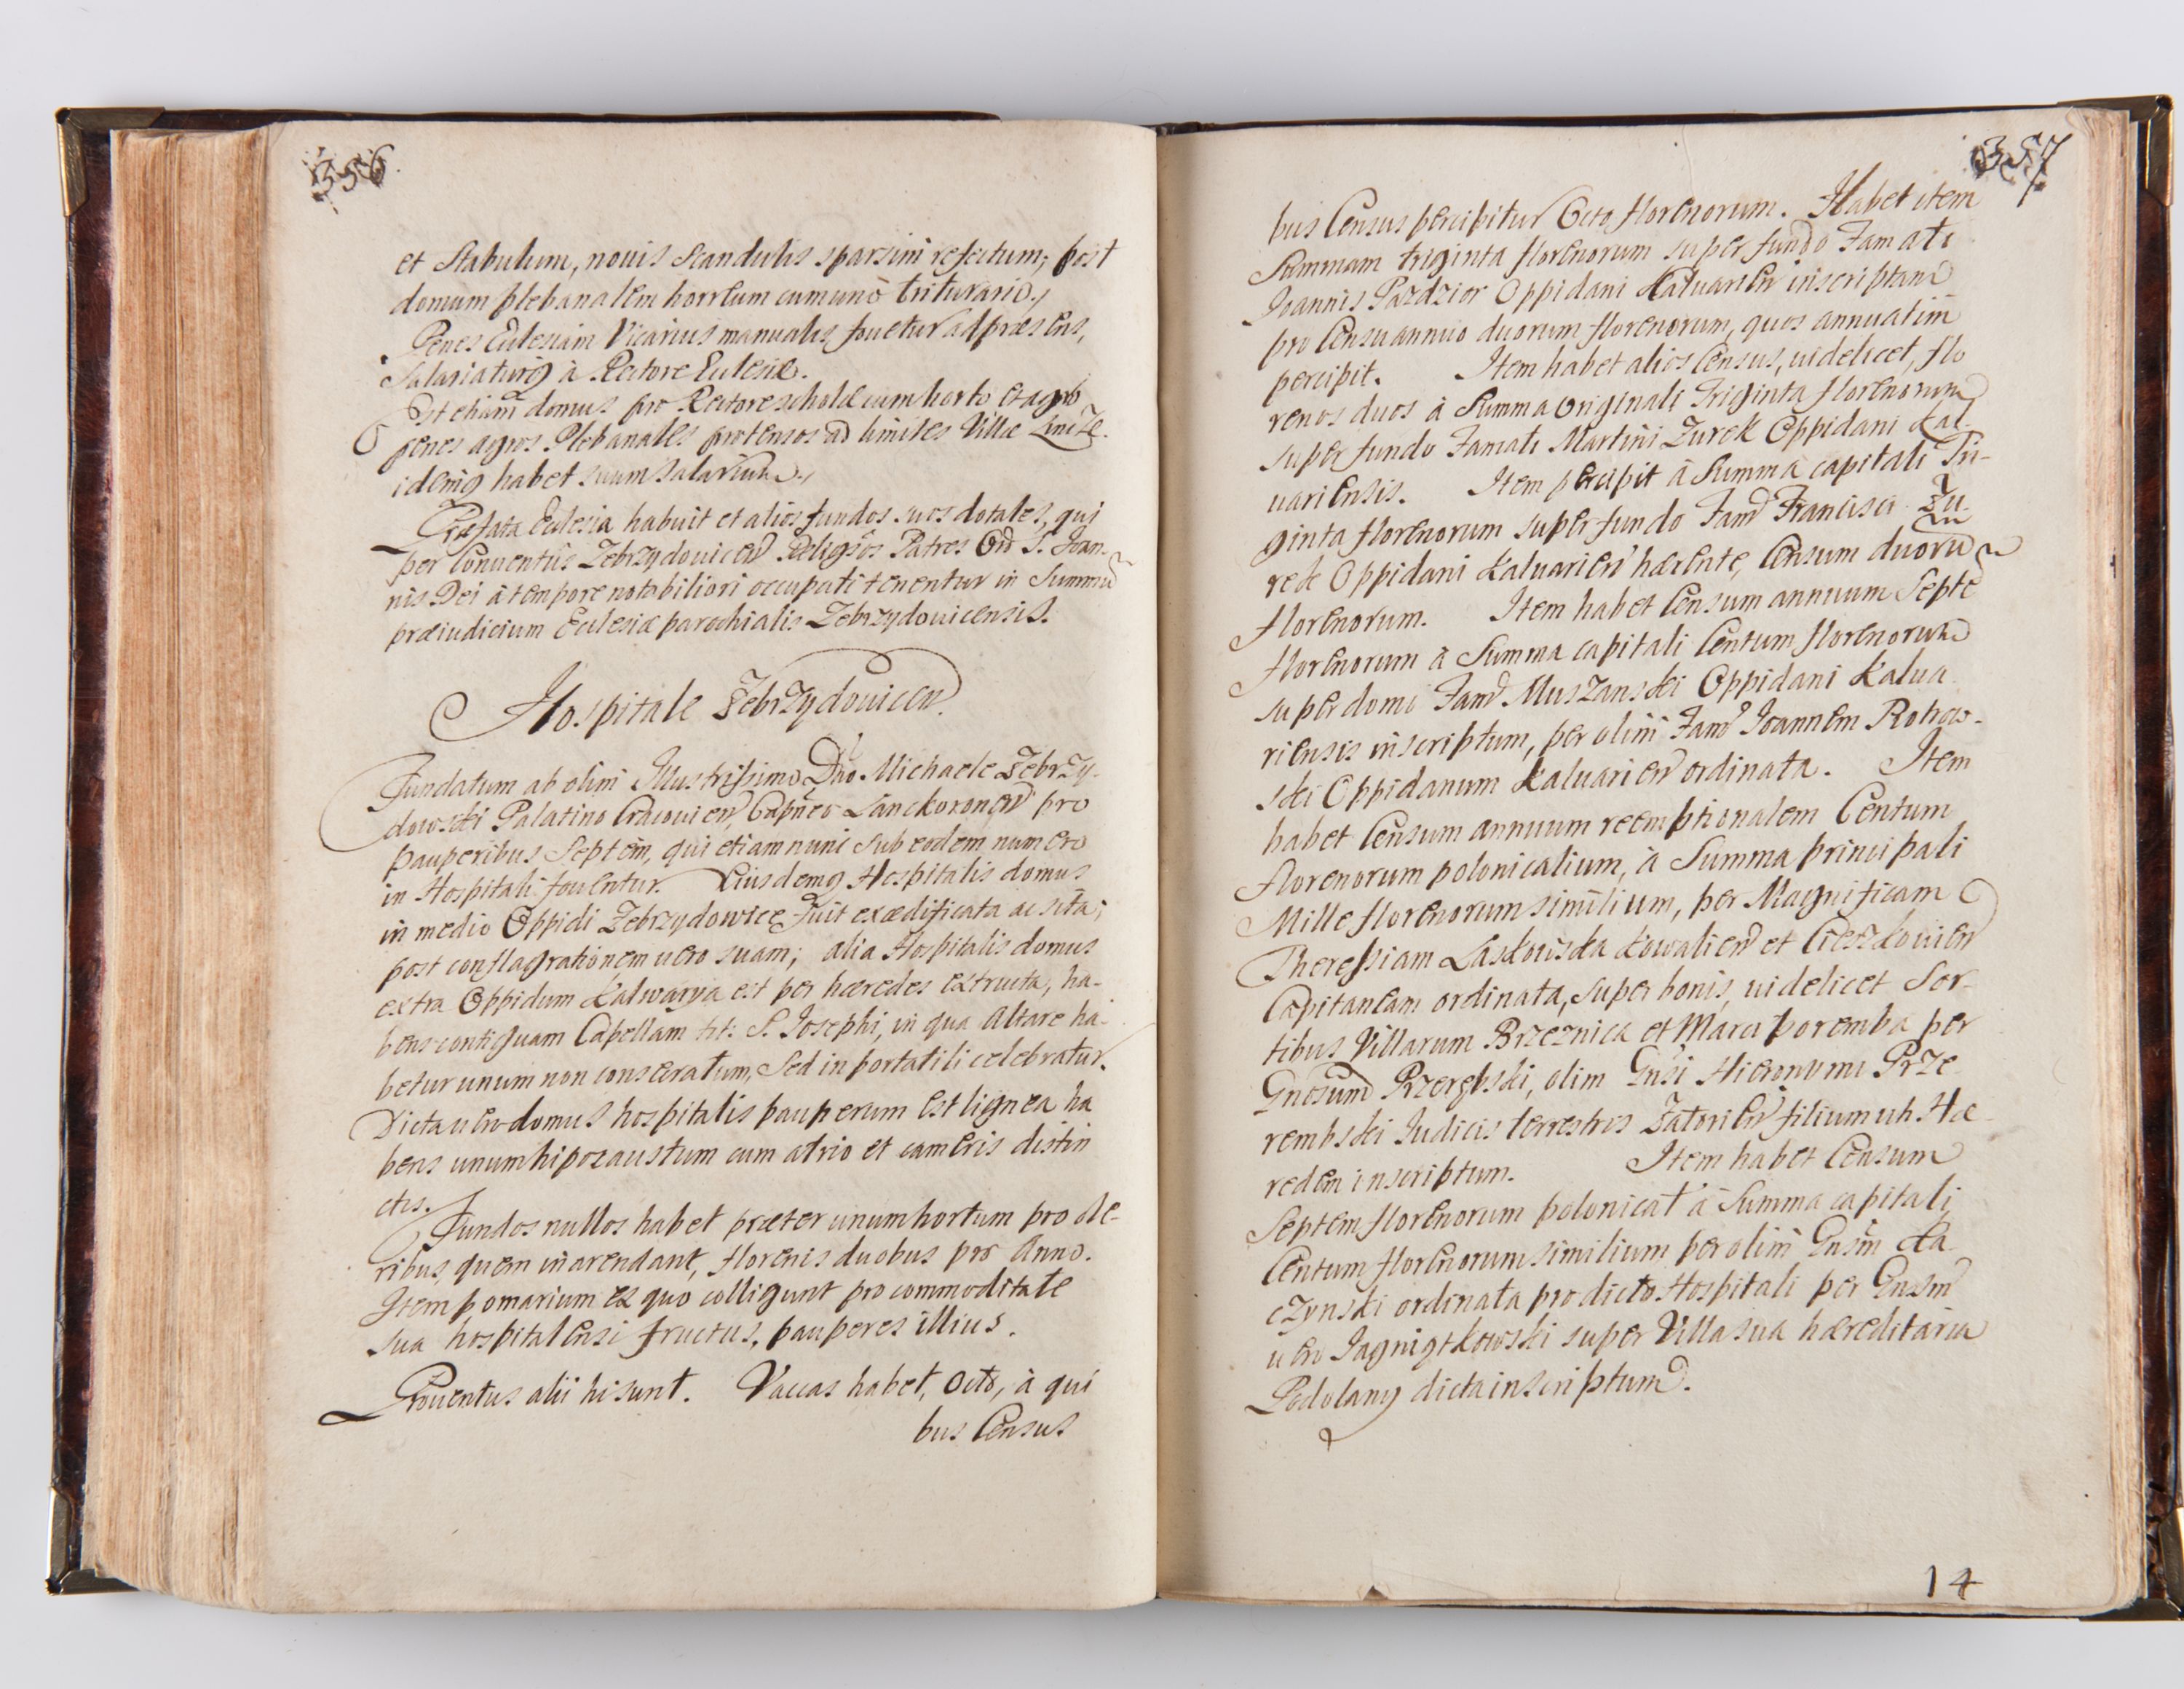 356.
et Stabulum, nouis Scandulis sparsim refectum; post
domum plebanalem horreum cum uno triturario.
Penes Eclesiam Vicarius manualis fouetur ad præsens,
Salariaturq à Rectore Eclesiæ.
Est etiam domus pro Rectore scholæ cum horto et agro
penes agros Plebanales protensos ad limites Villæ
idemq habet suum Salarium.
Præfata Eclesia habuit et alios fundos suos dotales, qui
per Conuentûs Zebrzydouicen Religsos Patres Ord S. Joan-
nis Dei à tempore notabiliori occupati tenentur in Summū
præiudicium Eclesiæ parochialis Zebrzydouicensis.
Hospitale Zebrzydouicen.
Fundatum ab olim Illustrissimo Dno Michaele Zebrzy-
dowski Palatino Cracouien, Capneo Lanckoronen pro
pauperibus Septem, qui etiam nunc sub eodem numero
in Hospitali fouentur. Eiusdemq Hospitalis domus
in medio Oppidi Zebrzydowice fuit exædificata ac sita;
post conflagrationem uero suam; alia Hospitalis domus
extra Oppidum Kalwarya est per hæredes extructa, ha-
bens contiguam Capellam tit: S. Josephi, in qua Altare ha-
betur unum non consecratum, Sed in portatili celebratur.
Dicta uero domus hospitalis pauperum est lignea ha
bens unum hipocaustum cum atrio et cameris distin
ctis.
Fundos nullos habet præter unum hortum pro ole-
ribus, quem inarendant, florenis duobus pro Anno.
Item pomarium ex quo colligunt pro commoditate
sua hospitalensi fructus, pauperes illius.
Prouentus alii hi sunt. Vaccas habet, octo, à qui
bus Census
357
bus Census percipitur Octo florenorum. Habet item
Summam triginta florenorum super fundo Famati
Joannis Pazdzior Oppidani Kaluarien inscriptam
pro Censu annuo duorum florenorum, quos annuatim
percipit. Item habet alios Census, uidelicet, flo
renos duos à Summa Originali Triginta florenorum
super fundo Famati Martini Zurek Oppidani Kal-
uariensis. Item percipit à Summa capitali Tri-
ginta florenorum super fundo Famd Francisci Zu-
rek Oppidani Kaluarien hærente, Censum duorū
florenorum. Item habet Censum annuum Septē
florenorum à Summa capitali Centum florenorum
super domo Famd Muszanski Oppidani Kalua-
riensis inscriptum, per olim Famd Joannem Rotkow-
ski Oppidanum Kaluarien ordinata. Item
habet Censum annuum reemptionalem Centum
florenorum polonicalium, à Summa principali
Mille florenorum similium, per Magnificam
Theressiam Laskowska Kowalien et Cieszkouien
Capitaneam ordinata, super bonis, uidelicet Sor-
tibus Villarum Brzeznica et Marci poremba per
Gnosum Przerębski, olim Gnsi Hieronymi Prze
rembski Iudicis terrestris Zatorien filium uti Hæ-
redem inscriptum. Item habet Censum
Septem florenorum polonical à Summa capitali
Centum florenorum similium per olim Gnsm Ka-
czynski ordinata pro dicto Hospitali per Gnsm
uero Jagniątkowski super Villa sua hæreditaria
Podolany dicta inscriptum.
14